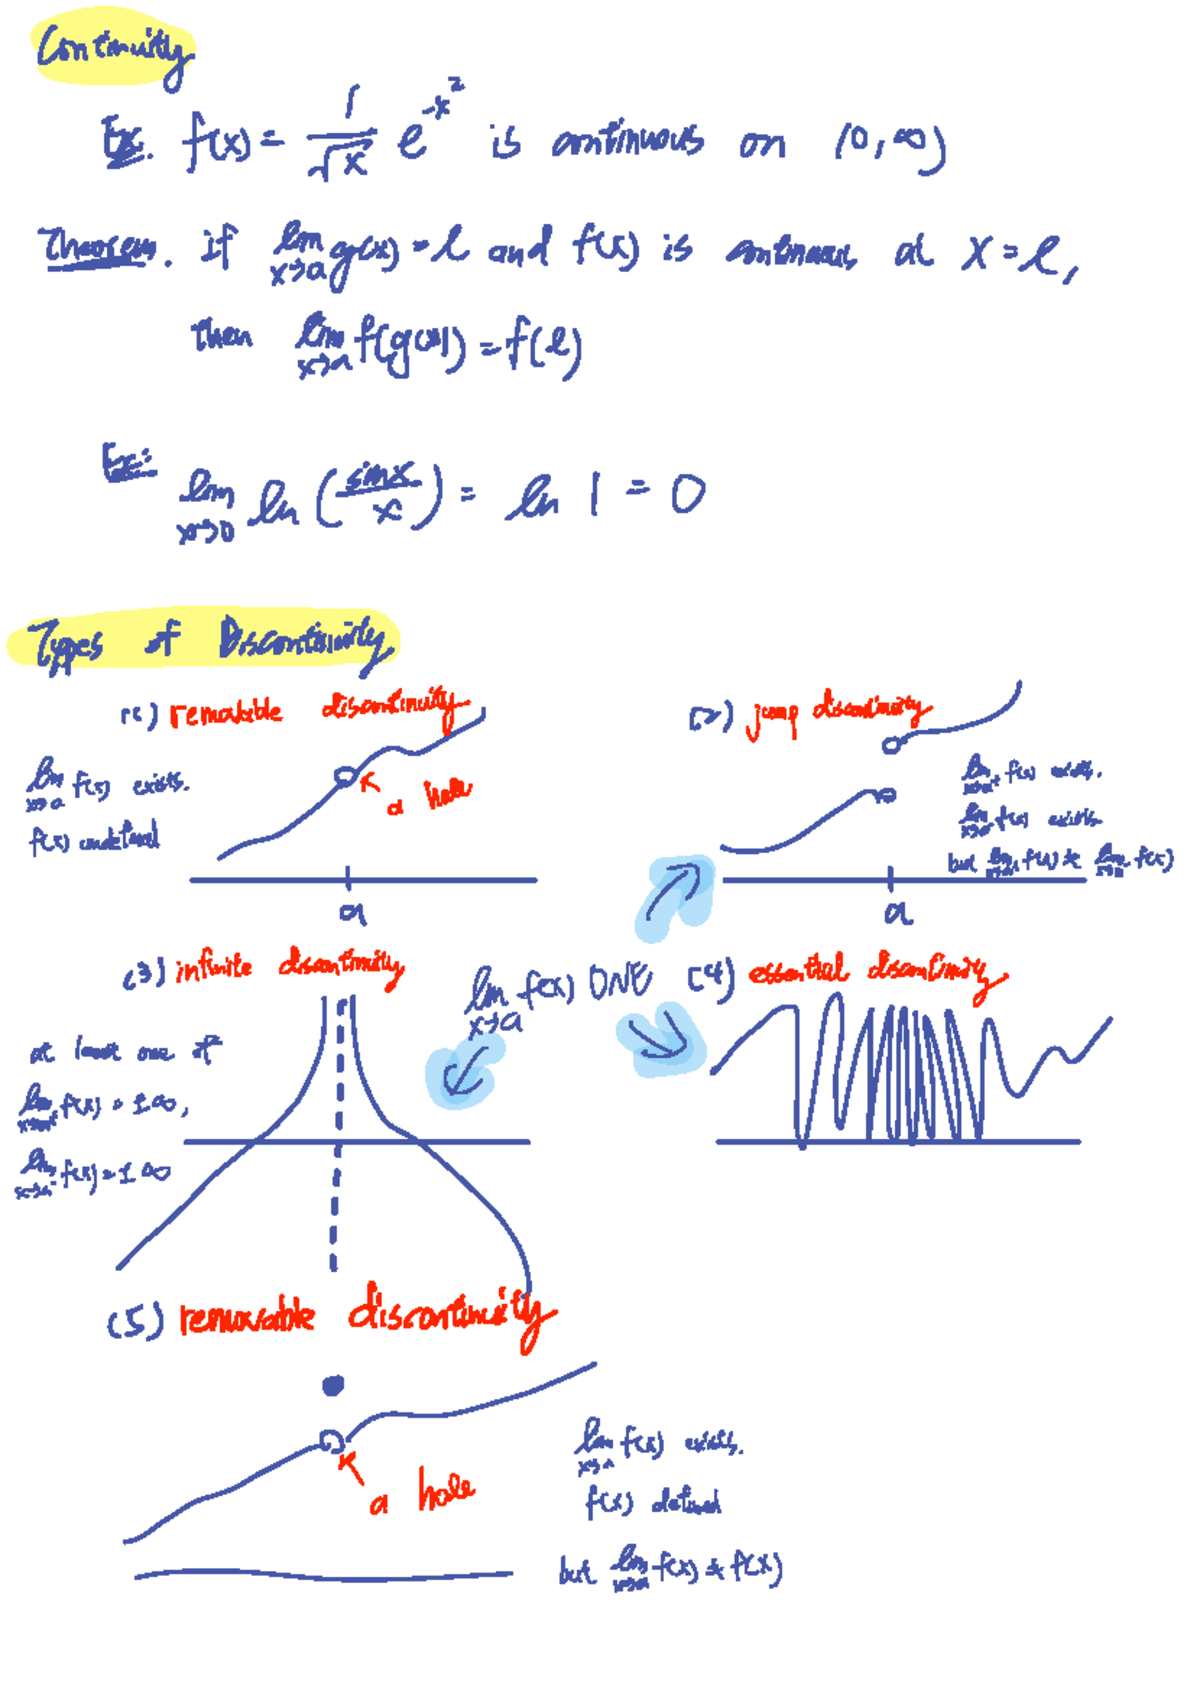 Continuity
Ex. f(x) = 1/√x e^(-x²) is continuous on (0, ∞)
Theorem. if lim x→a g(x) = l and f(x) is continuous at x = l,
then lim x→a f(g(x)) = f(l)
Ex:
lim x→0 ln (sinx/x) = ln 1 = 0
Types of Discontinuity
(1) removable discontinuity
lim x→a f(x) exists.
f(x) undefined
a hole
a
(2) jump discontinuity
lim x→a⁺ f(x) exists.
lim x→a⁻ f(x) exists.
but lim x→a⁺ f(x) ≠ lim x→a⁻ f(x)
a
(3) infinite discontinuity
at least one of
lim x→a⁺ f(x) = ±∞,
lim x→a⁻ f(x) = ±∞
lim x→a f(x) DNE
(4) essential discontinuity
(5) removable discontinuity
a hole
lim x→a f(x) exists.
f(x) defined
but lim x→a f(x) ≠ f(x)